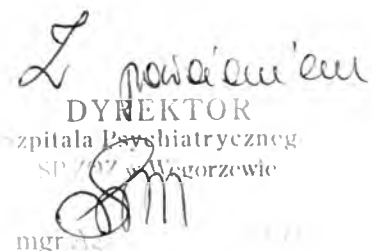 Z poważaniem
DYREKTOR
zpitala Psychiatryczneg
SP ZOZ w Węgorzewie
mgr